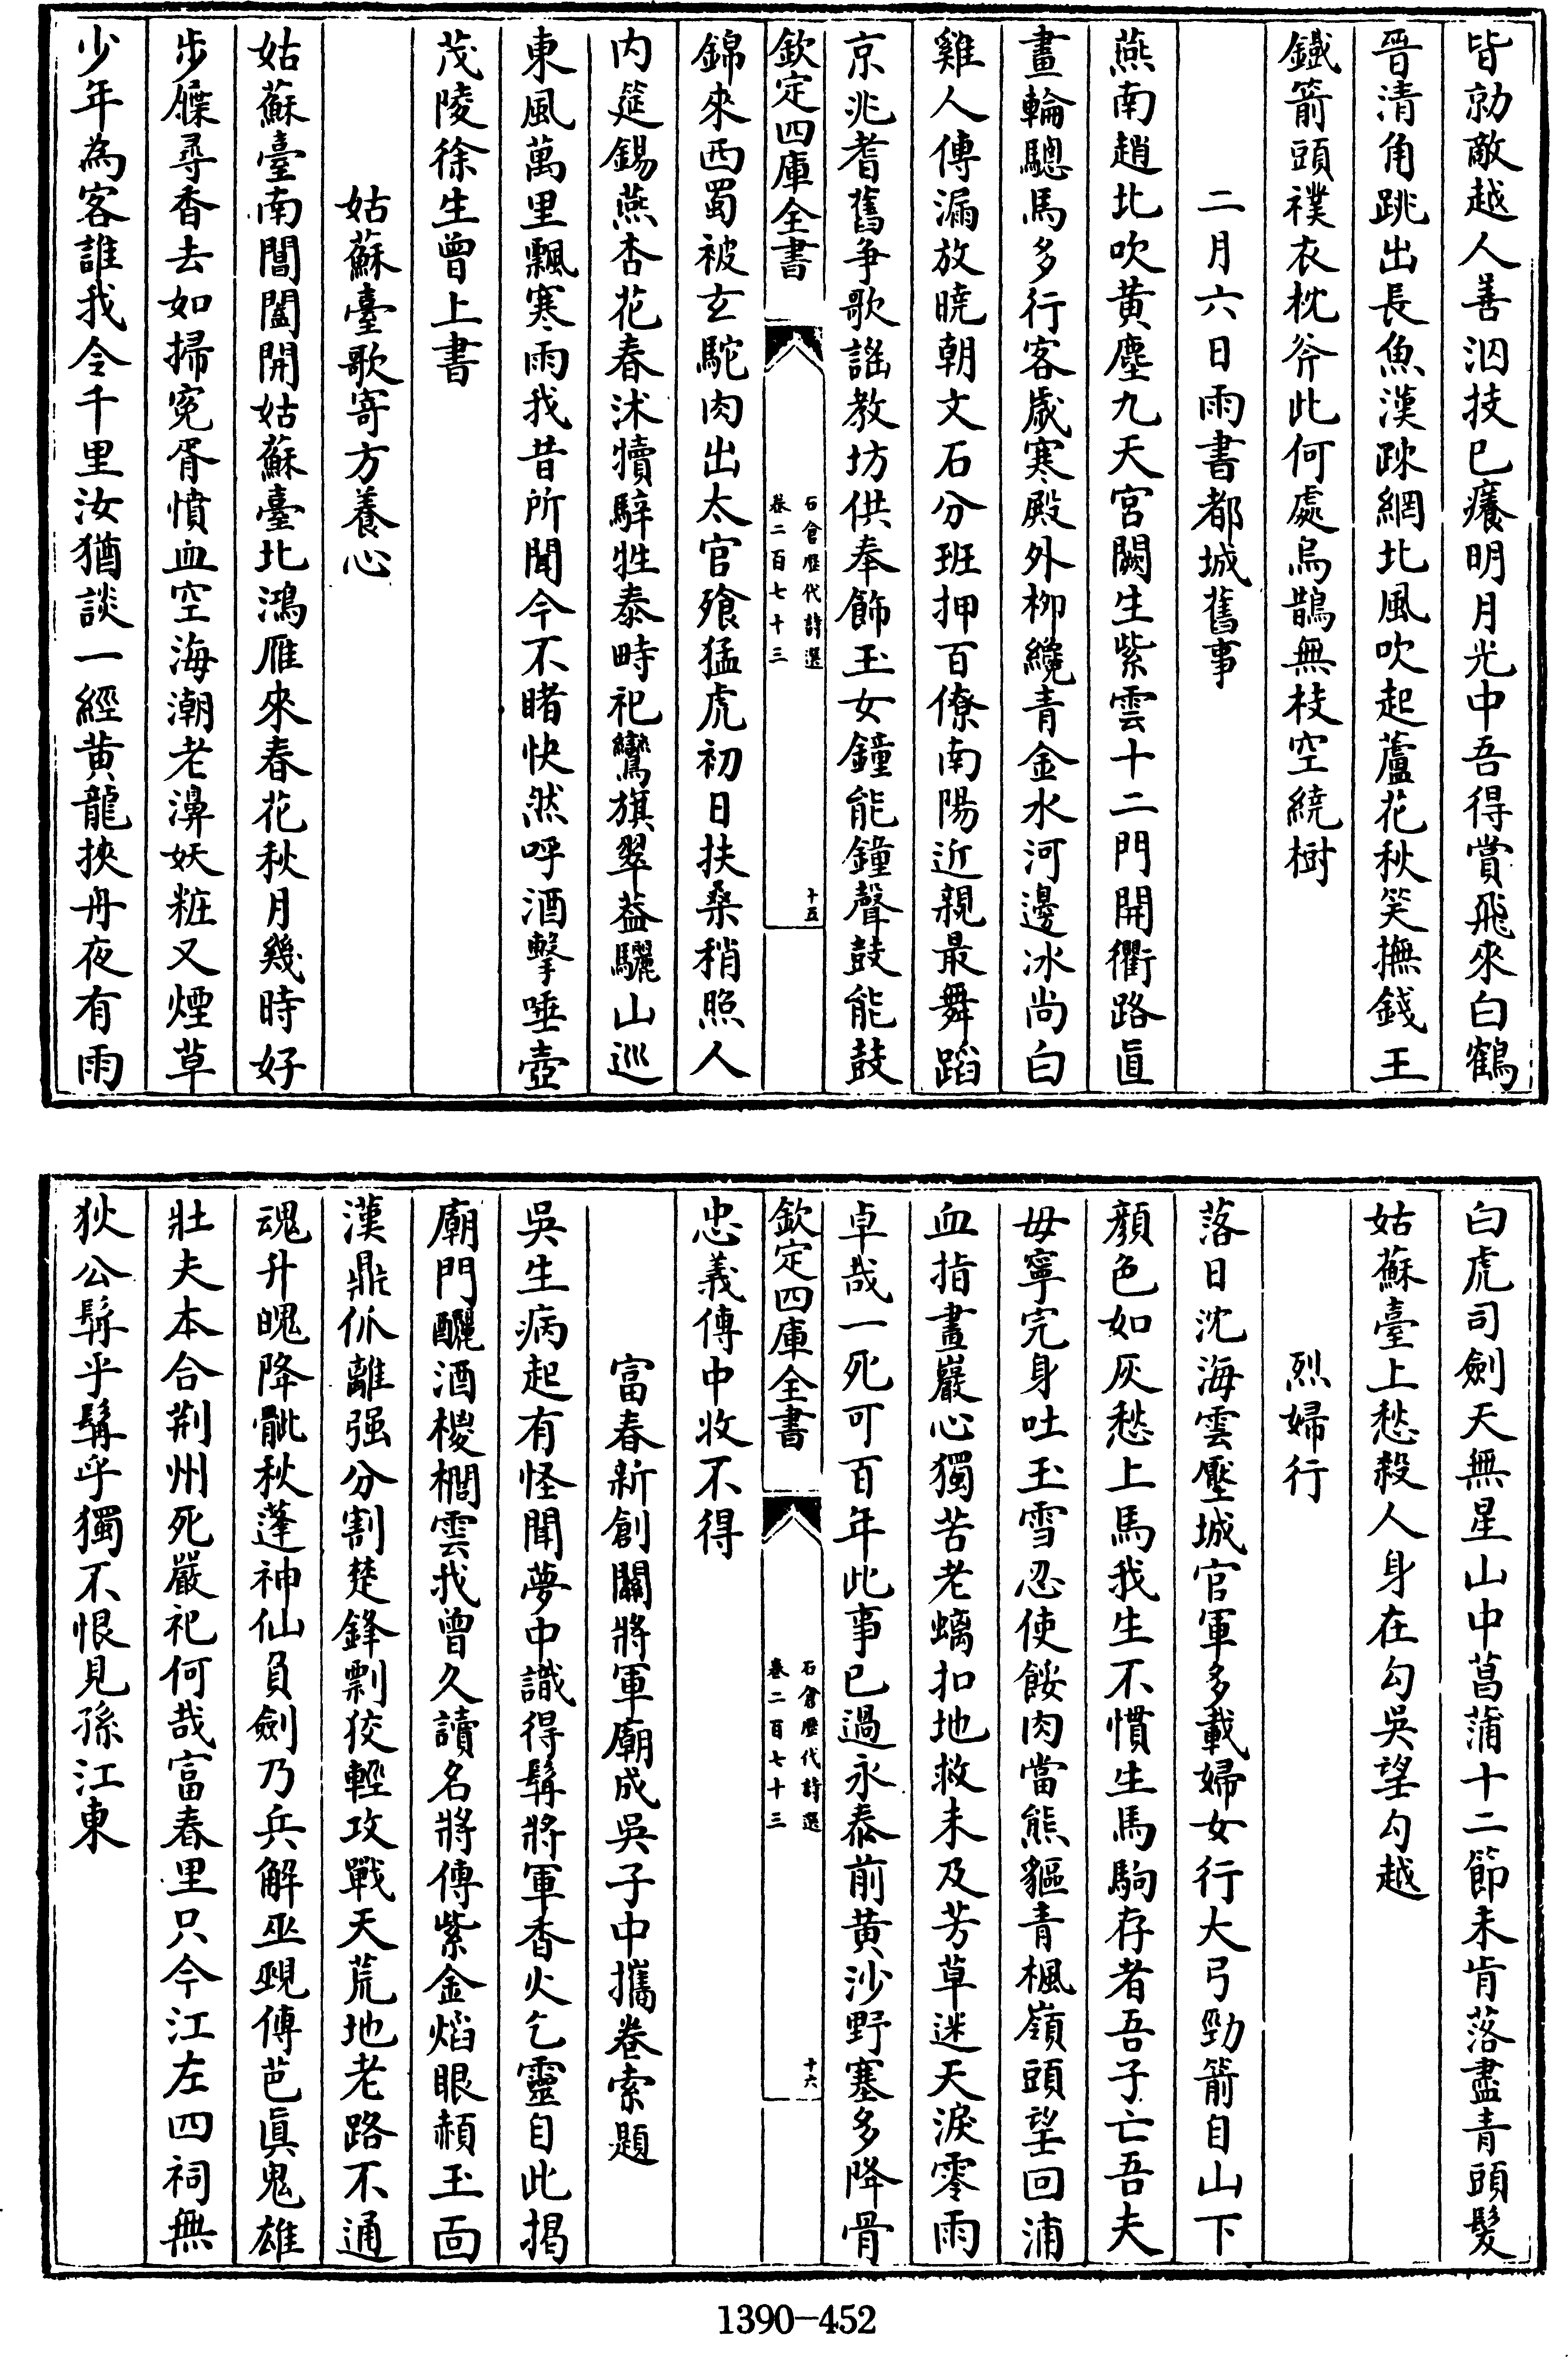 皆勍敵越人善泅技已癢明月光中吾得賞飛來白鶴
晉清角跳出長魚漢疎網北風吹起蘆花秋笑撫錢王
鐵箭頭襆衣枕斧此何處烏鵲無枝空繞樹
二月六日雨書都城舊事
燕南趙北吹黄塵九天宮闕生紫雲十二門開衢路直
畫輪驄馬多行客歲寒殿外柳纔青金水河邊冰尚白
雞人傳漏放曉朝文石分班押百僚南陽近親最舞蹈
京兆耆舊争歌謡教坊供奉飾玉女鐘能鐘聲鼓能鼓
欽定四庫全書
石倉歷代詩選
卷二百七十三
十五
錦來西蜀被玄駝肉出太官飱猛虎初日扶桑稍照人
内筵錫燕杏花春沭犢騂牲泰畤祀鸞旗翠葢驪山巡
東風萬里飄寒雨我昔所聞今不睹快然呼酒擊唾壺
茂陵徐生曾上書
姑蘇臺歌寄方養心
姑蘇臺南閶闔開姑蘇臺北鴻雁來春花秋月幾時好
步屧尋香去如掃寃胥憤血空海潮老濞妖粧又煙草
少年為客誰我令千里汝猶談一經黄龍挾舟夜有雨
白虎司劍天無星山中菖蒲十二節未肯落盡青頭髮
姑蘇臺上愁殺人身在勾吳望勾越
烈婦行
落日沈海雲壓城官軍多載婦女行大弓勁箭自山下
顔色如灰愁上馬我生不慣生馬駒存者吾子亡吾夫
毋寧完身吐玉雪忍使餒肉當熊貙青楓嶺頭望回浦
血指畫巖心獨苦老螭扣地救未及芳草迷天淚零雨
卓哉一死可百年此事已過永泰前黄沙野塞多降骨
欽定四庫全書
石倉歷代詩選
卷二百七十三
十六
忠義傳中收不得
富春新創關將軍廟成吳子中攜卷索題
吳生病起有怪聞夢中識得髯將軍香火乞靈自此揭
廟門釃酒椶櫚雲我曾久讀名將傳紫金焰眼赬玉面
漢鼎仳離强分割楚鋒剽狡輕攻戰天荒地老路不通
魂升魄降骴秋蓬神仙負劍乃兵解巫覡傳芭眞鬼雄
壯夫本合荆州死嚴祀何哉富春里只今江左四祠無
狄公髯乎髯乎獨不恨見孫江東
1390-452